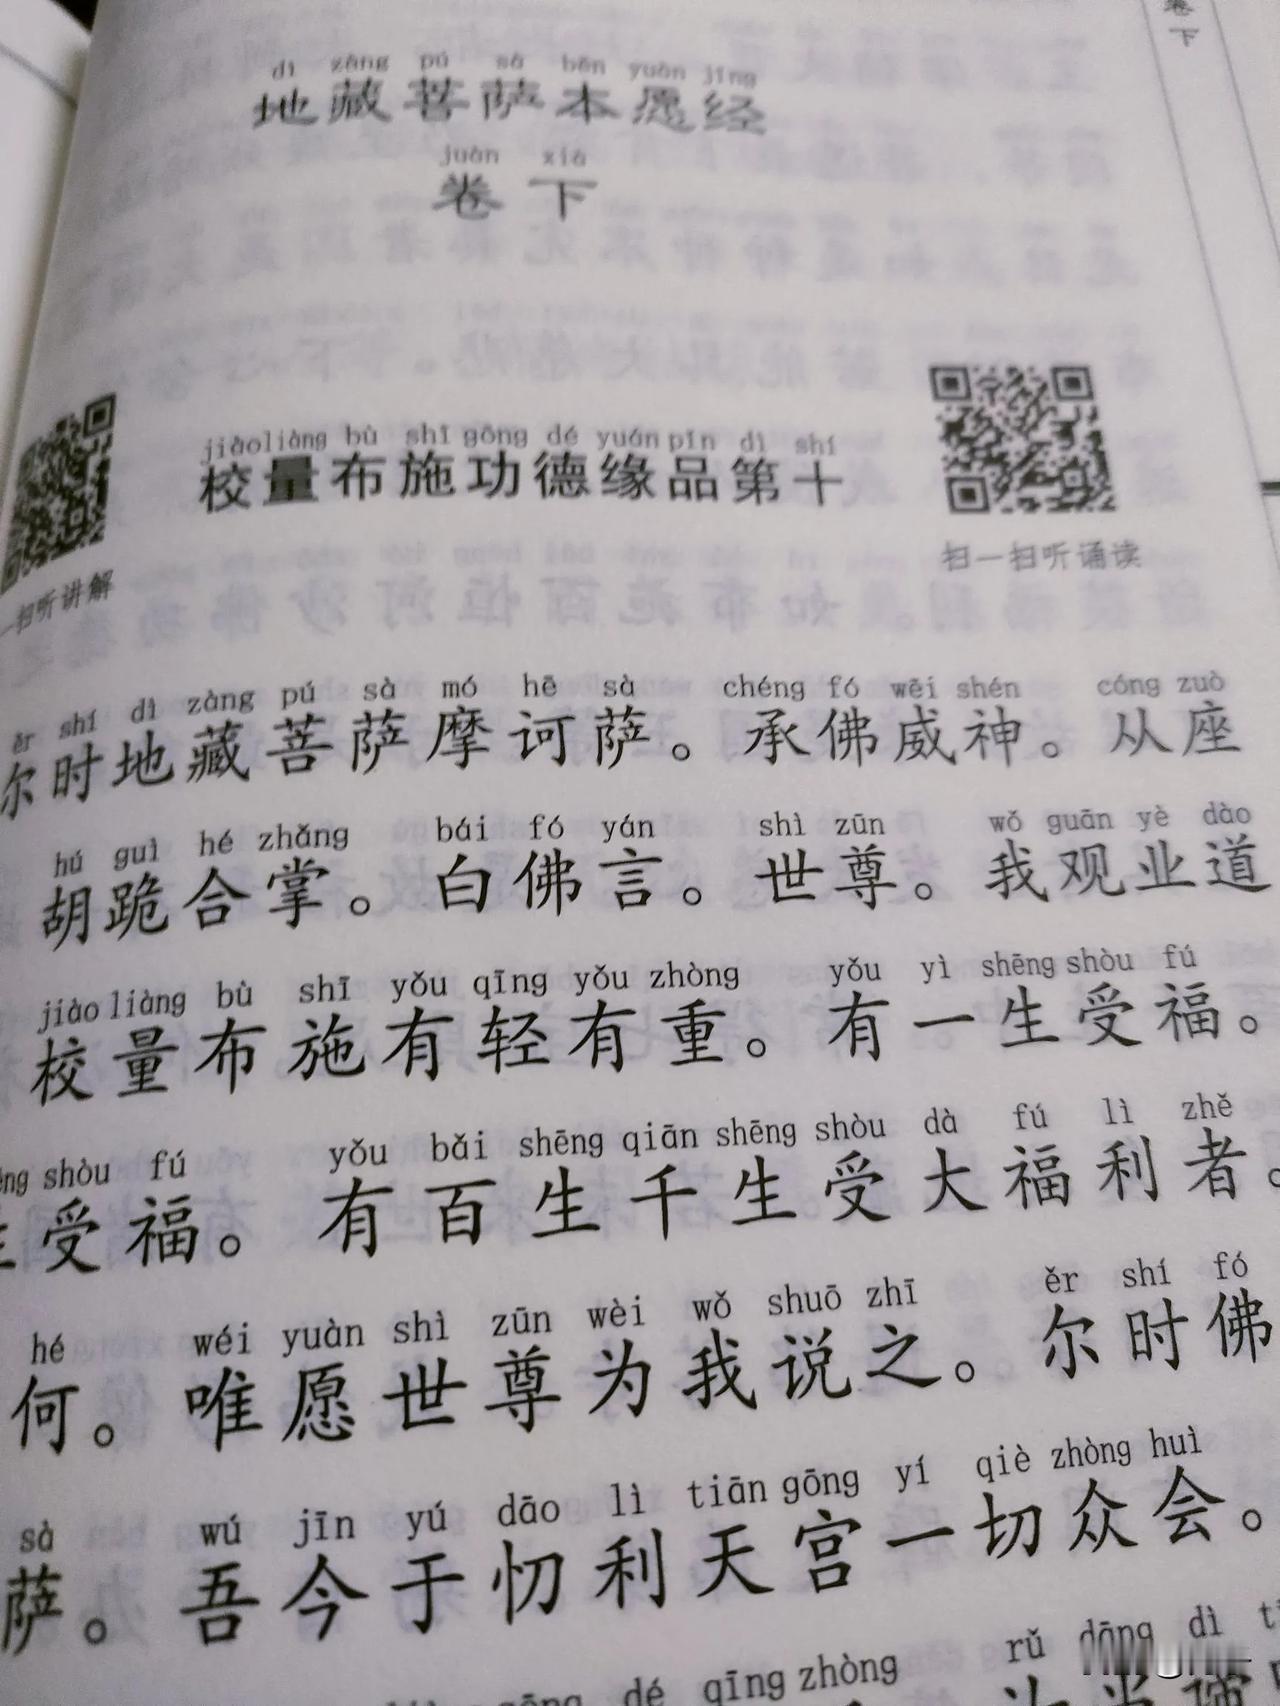 卷下
dì zàng pú sà běn yuàn jīng
地藏菩萨本愿经
juàn xià
卷下
jiào liàng bù shī gōng dé yuán pǐn dì shí
校量布施功德缘品第十
一扫听讲解
扫一扫听诵读
ěr shí dì zàng pú sà mó hē sà chéng fó wēi shén cóng zuò
尔时地藏菩萨摩诃萨。承佛威神。从座
hú guì hé zhǎng bái fó yán shì zūn wǒ guān yè dào
胡跪合掌。白佛言。世尊。我观业道
jiào liàng bù shī yǒu qīng yǒu zhòng yǒu yì shēng shòu fú
校量布施有轻有重。有一生受福。
shòu fú yǒu bǎi shēng qiān shēng shòu dà fú lì zhě
生受福。有百生千生受大福利者。
hé wéi yuàn shì zūn wèi wǒ shuō zhī ěr shí fó
何。唯愿世尊为我说之。尔时佛
sà wú jīn yú dāo lì tiān gōng yí qiè zhòng huì
萨。吾今于忉利天宫一切众会。
gōng dé qīng zhòng rǔ dāng dì
汝当谛